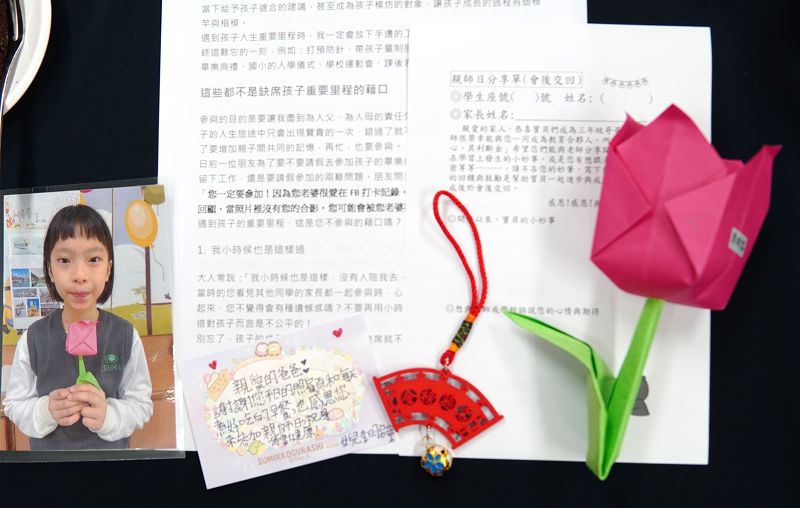 當下給予孩子適合的建議，甚至成為孩子模仿的對象，讓孩子成長的過程有個標
竿與楷模。
遇到孩子人生重要里程時，我一定會放下手邊的工
錄這難忘的一刻，例如：打預防針、帶子量制服
畢業典禮、國小的入學儀式、學校運動會、課後表
這些都不是缺席孩子重要里程的藉口
參與的目的是要讓我盡到為人父、為人母的責任外
子的人生旅途中只會出現寶貴的一次，錯過了就不
了要增加親子間共同的記憶，再忙，也要參與。
日前一位朋友為了要不要請假去參加孩子的畢業
留下工作，還是要請假參加的兩難問題，朋友問
「您一定要參加！因為您老婆很愛在 FB 打卡記錄，
回顧，當照片裡沒有您的合影，您可能會被您老婆
遇到孩子的重要里程，這是您不參與的藉口嗎？
1. 我小時候也是這樣過
大人常說：「我小時候也是這樣，沒有人陪我去、
當時的您看見其他同學的家長都一起參與時，心
起來，您不覺得會有種遺憾感嗎？不要再用小時
這對孩子而言是不公平的！
別忘了，孩子的
席就不
親師日分享單(會後交回)
◎學生座號(　)號　姓名：(　　　)
◎家長姓名：
親愛的家人，恭喜寶貝們成為三年級哥
師很榮幸能與您一同成為教育合夥人，所
心，其利斷金」，希望您們能與老師分享
在學習上發生的小妙事，或是您有想跟
密等等……，請不吝您的妙筆，寫下
的回饋與鼓勵是幫助寶貝一起進步與成
或後於會後交回。
感恩！感恩！
◎開
以來，寶貝的小妙事
◎想
師或學校訴說您的心情與期待
親愛的爸爸
謝謝您平日的照顧和每天
準備好吃的早餐，也感恩您
來參加親師日祝身
體健康
女兒
SUMIKKOGURASHI